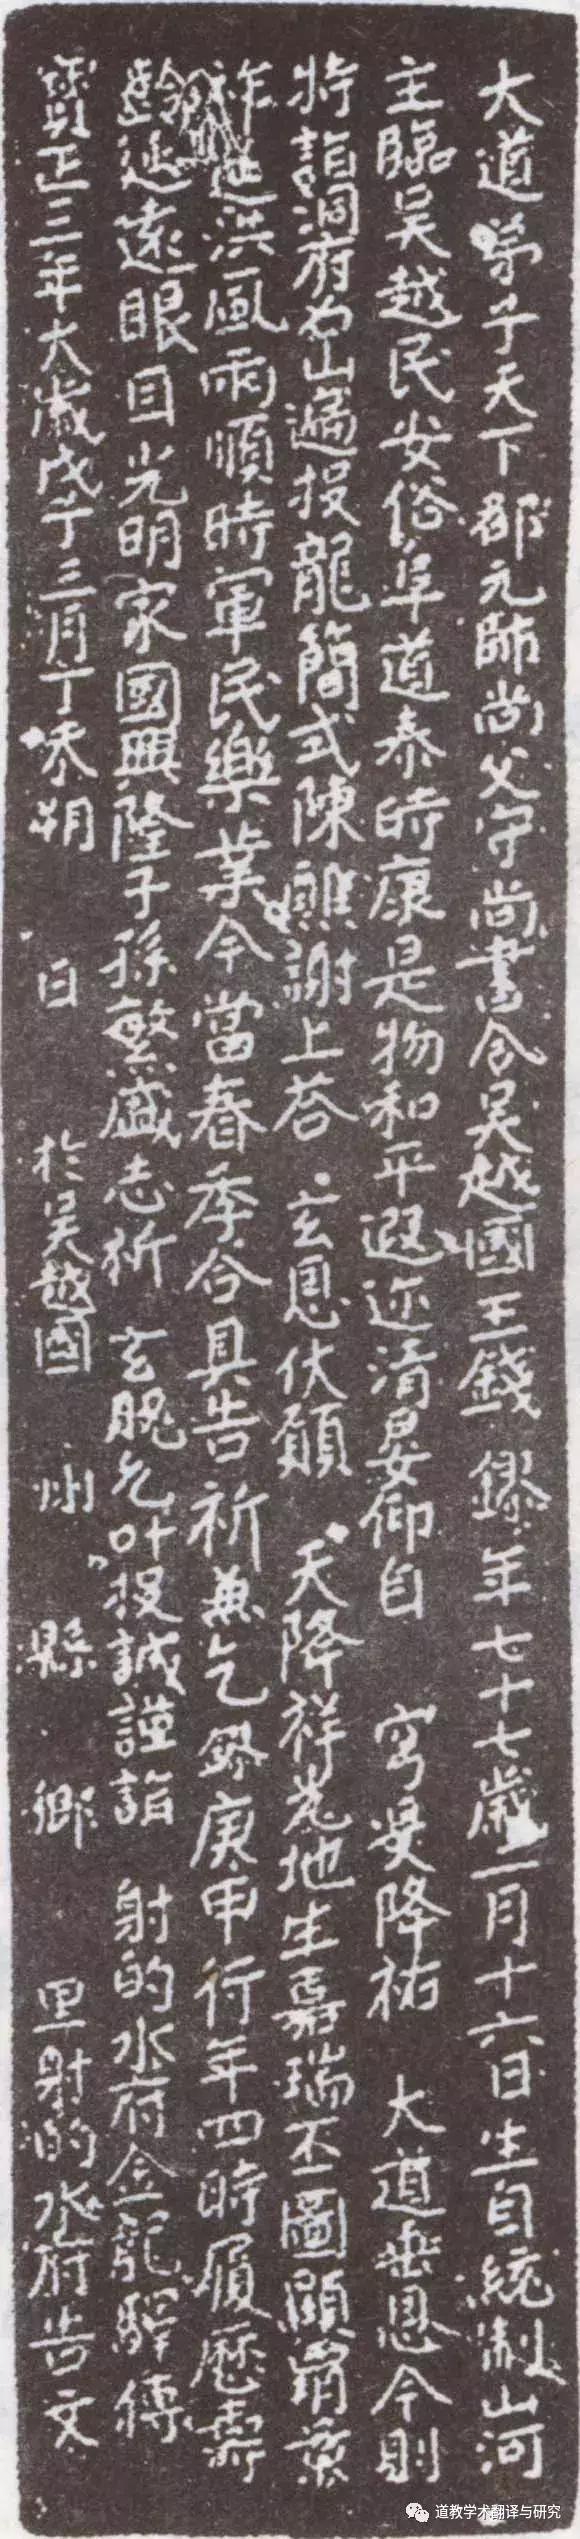 大道弟子天下都元帥尚父守尚書令吳越國王錢鏐年七十七歲二月十六日生自統制山河
主臨吳越民安俗阜道泰時康是物和平遐迩清晏仰自 穹旻降祐 大道垂恩今則
將詣洞府名山遍投龍簡式陳醮謝上荅 玄恩伏願 天降祥光地生嘉瑞丕圖顯霸葉
祚延洪風雨順時軍民樂業今當春季合具告祈兼乞鏐庚申行年四時履歷壽
齡延遠眼目光明家國興隆子孫繁盛志祈 玄貺允叶投誠謹詣 射的水府金龍驛傳
寶正三年大歲戊子三月丁未朔 日 於吳越國 州 縣 鄉 里射的水府告文
道教学术翻译与研究